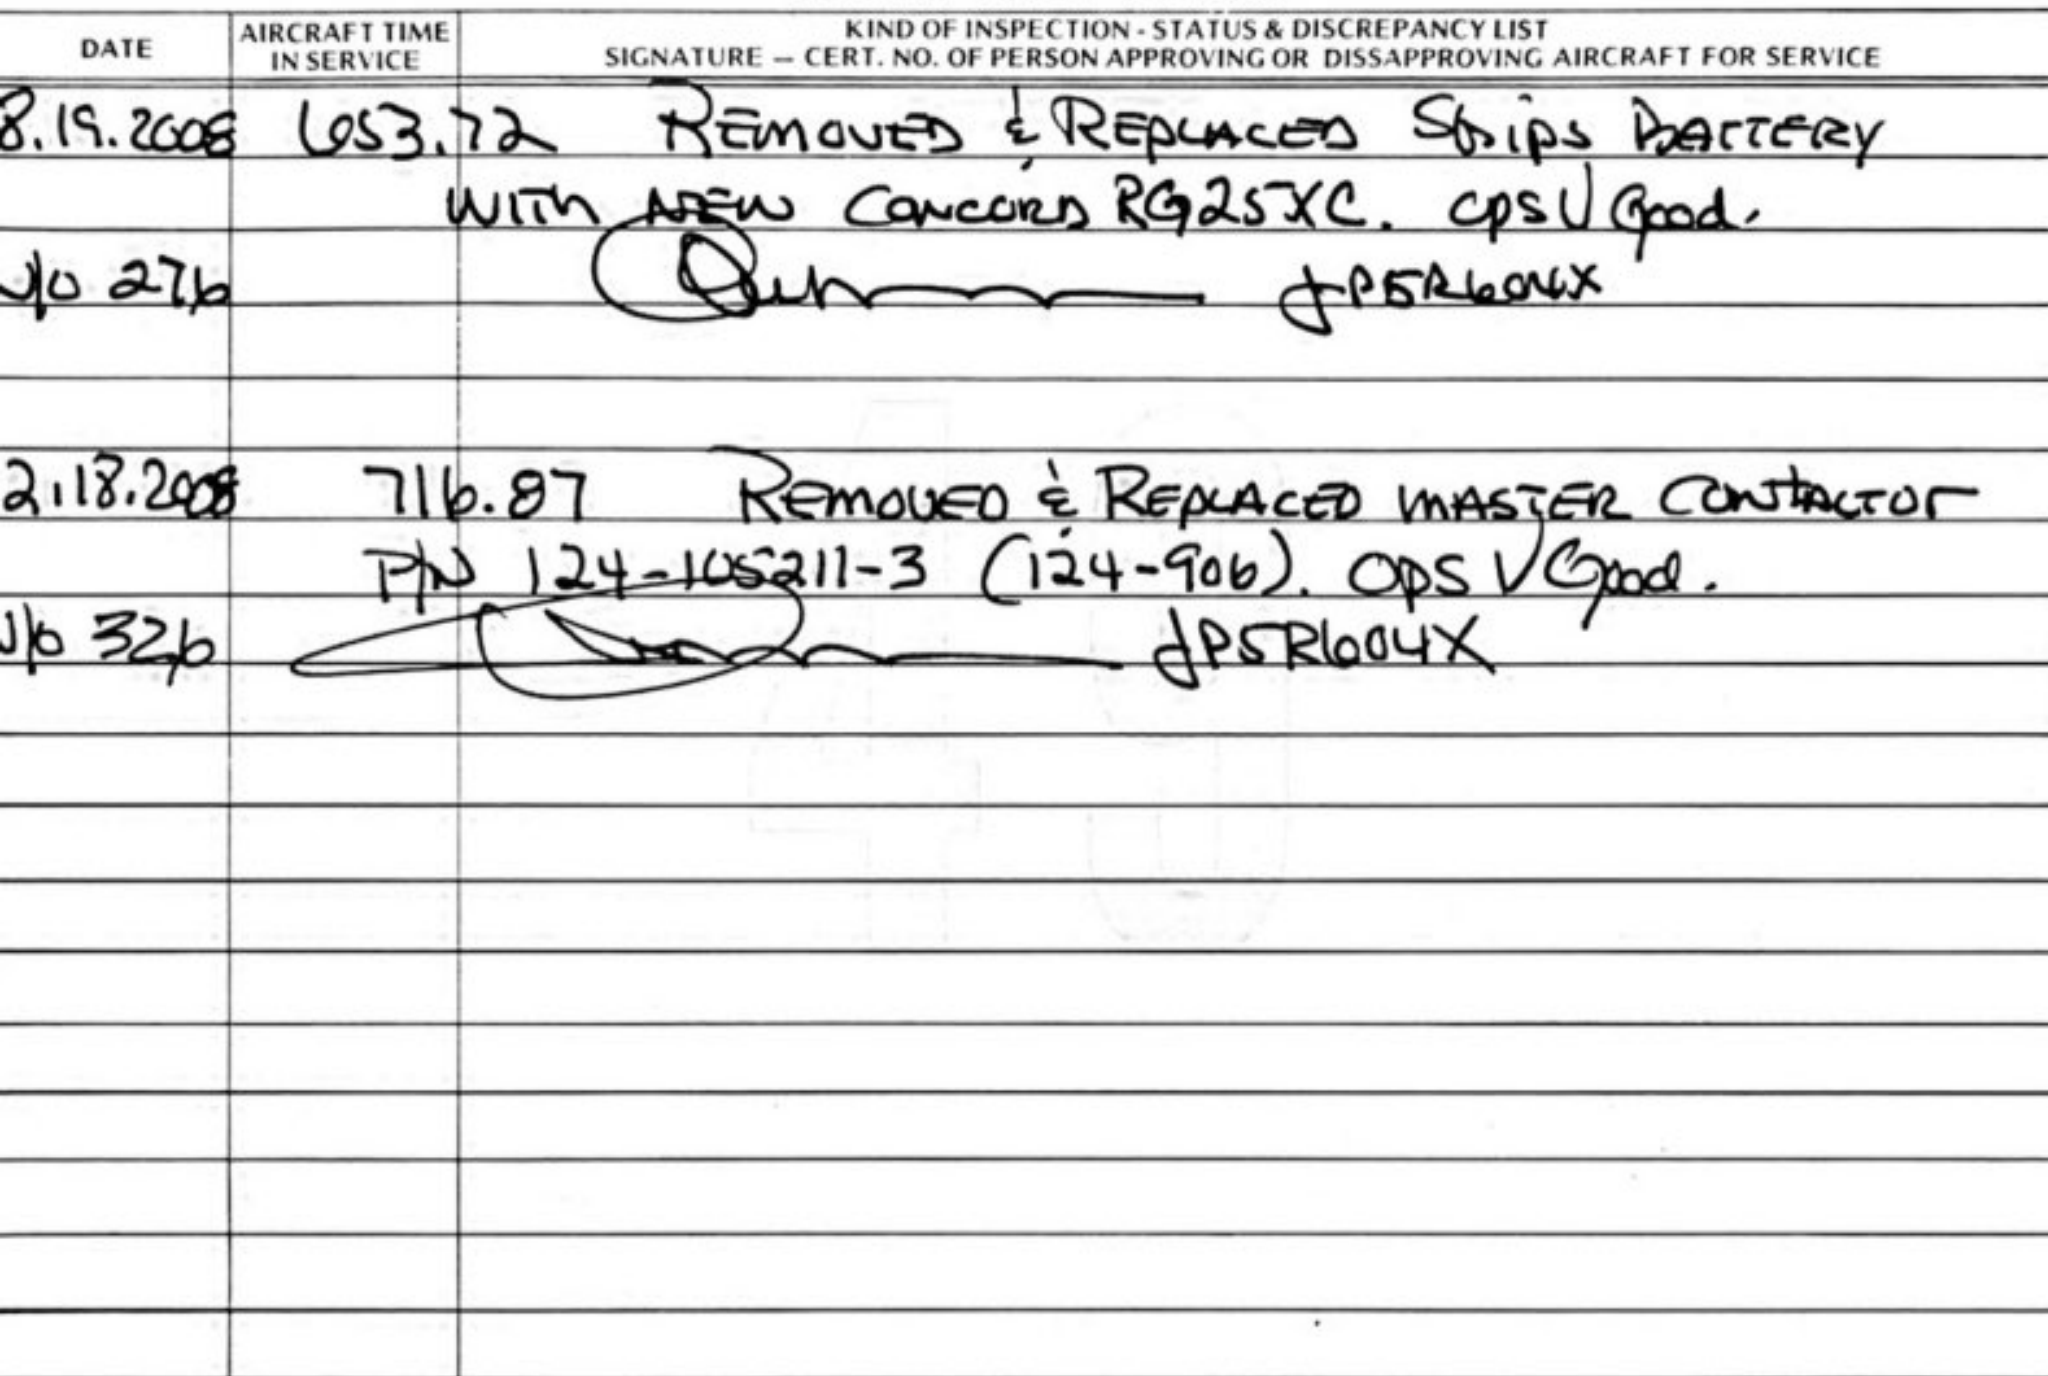 DATE
AIRCRAFT TIME
IN SERVICE
KIND OF INSPECTION - STATUS & DISCREPANCY LIST
SIGNATURE — CERT. NO. OF PERSON APPROVING OR DISSAPPROVING AIRCRAFT FOR SERVICE
8.19.2008 653.72 REMOVED & REPLACED Ships BATTERY
WITH NEW CONCORD RG25XC. OPS √ Good.
W/O 276 JP5R604X
2.18.2008 716.87 REMOVED & REPLACED MASTER CONTACTOR
P/N 124-105211-3 (124-906). OPS √ Good.
W/O 326 JP5R604X